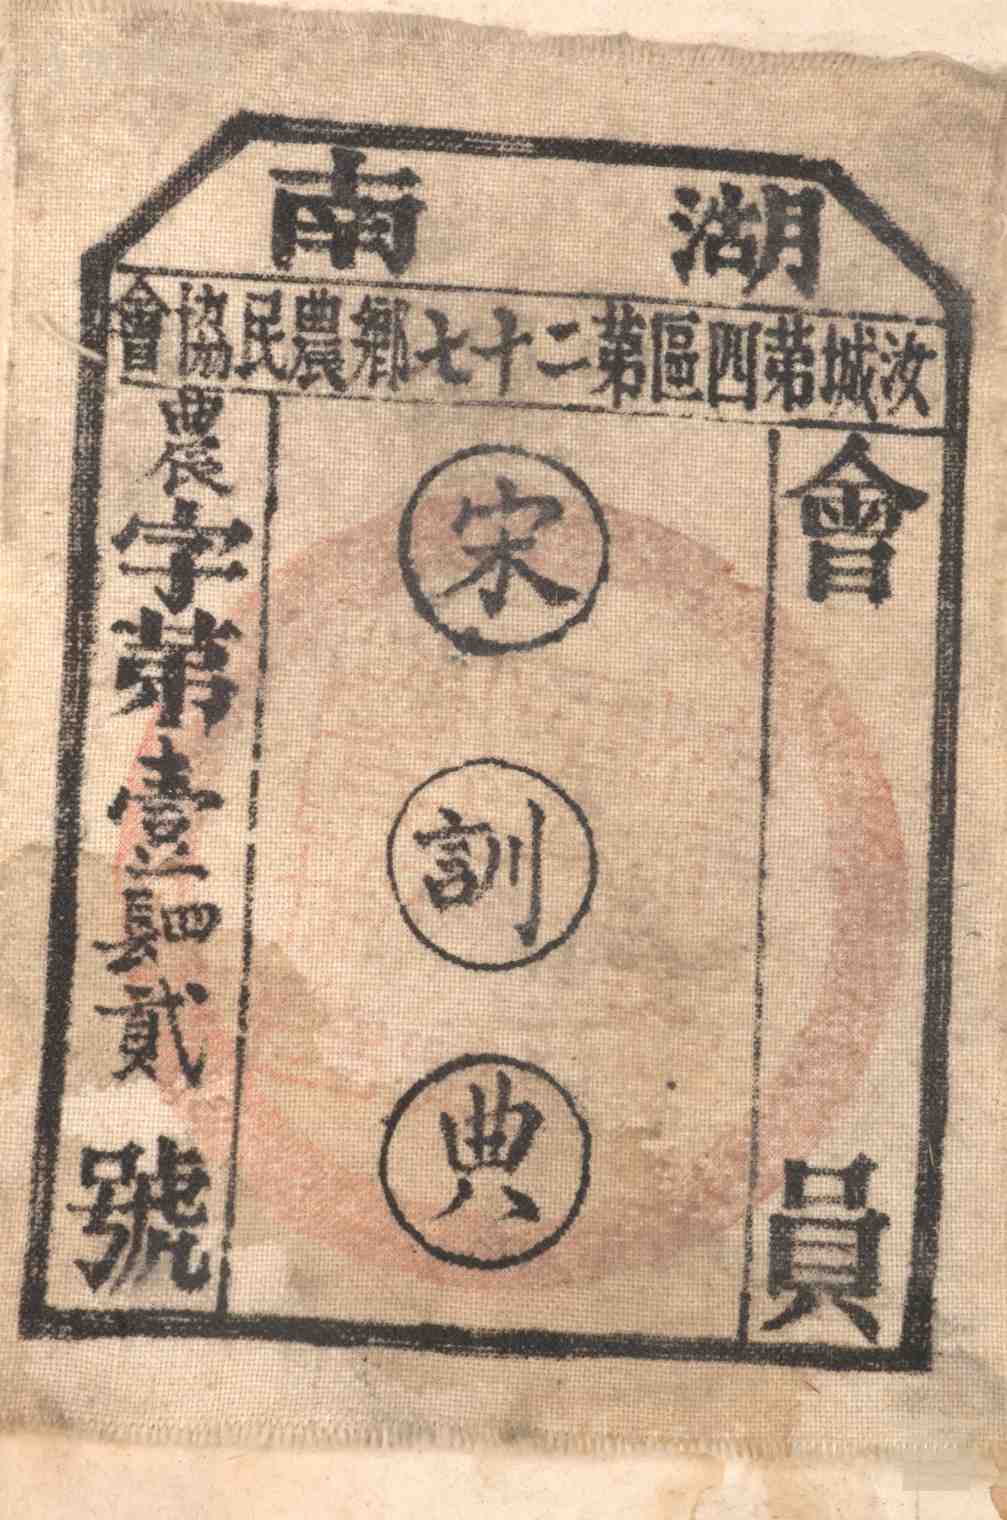 湖南
汝城第四區第二十七鄉農民協會
會員
宋訓典
農字第壹三四貳號